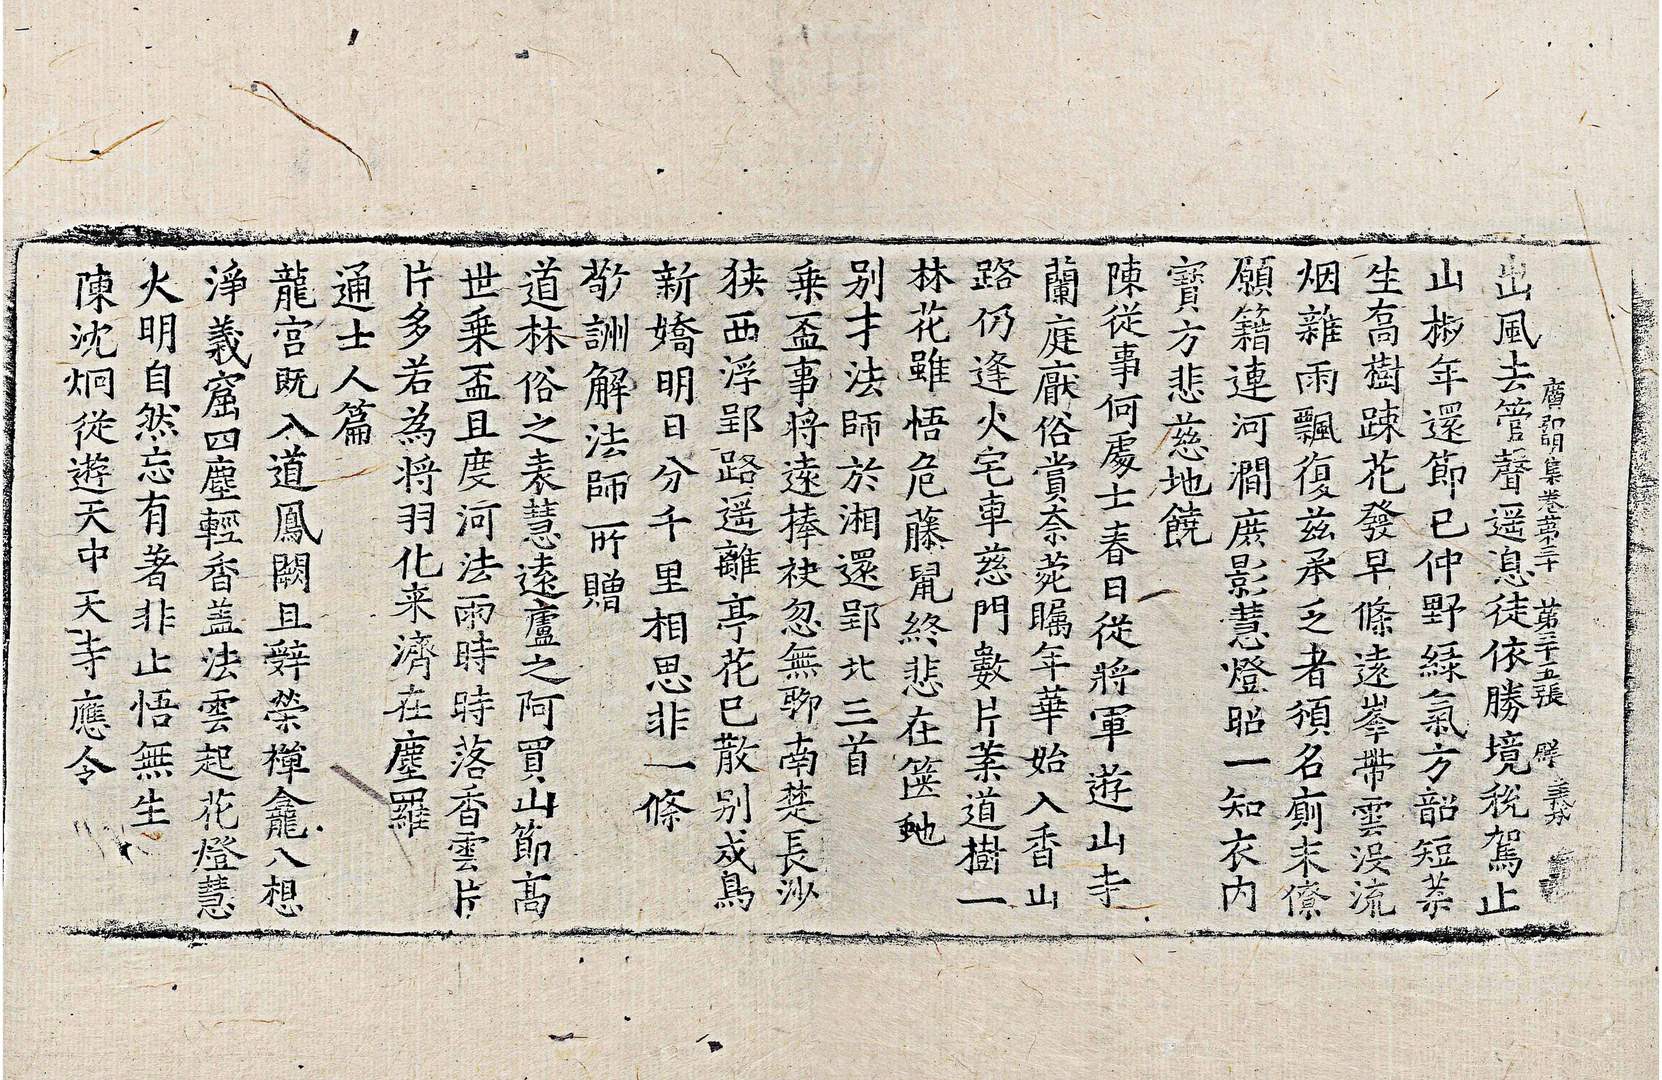 廣弘明集卷第三十 第三十五張 壁
出風去管聲遥息徒依勝境稅駕止
山椒年還節已仲野緑氣方韶短葉
生喬樹踈花發早條遠峯帶雲没流
烟雜雨飄復兹承乏者頫名廁末僚
願籍連河澗庶影慧燈昭一知衣内
寳方悲慈地饒
陳從事何處士春日從將軍遊山寺
蘭庭猒俗賞柰菀矚年華始入香山
路仍逢火宅車慈門數片葉道樹一
林花雖悟危藤鼠終悲在篋虵
别才法師於湘還郢北三首
乗盃事将遠捧袂忽無聊南楚長沙
狭西浮郢路遥離亭花已散别戍鳥
新嬌明日分千里相思非一條
敬訓解法師所贈
道林俗之表慧遠廬之阿買山節高
世乗盃且度河法雨時時落香雲片
片多若為将羽化来濟在塵羅
通士人篇
龍宫旣入道鳳闕且辤榮禪龕八想
淨義窟四塵輕香盖法雲起花燈慧
火明自然忘有著非止悟無生
陳沈炯從遊天中天寺應令